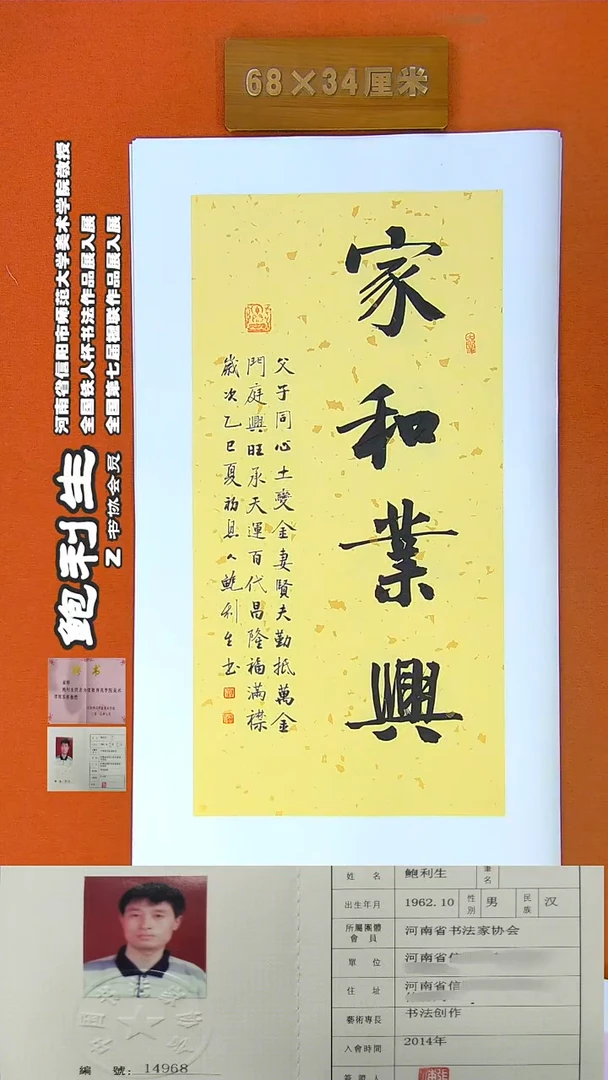 68×34厘米
家和業興
父子同心土變金妻賢夫勤抵萬金
門庭興旺承天運百代昌隆福滿襟
歲次乙巳夏初息人鮑利生書
河南省信阳市师范大学美术学院教授
全国铁人杯书法作品展入展
全国第七届楹联作品展入展
鲍利生
Z书协会员
聘书
姓名 鲍利生 筆名
出生年月 1962.10 性別 男 民族 汉
所屬團體會員 河南省书法家协会
單位 河南省信
住址 河南省信
藝術專長 书法创作
入會時間 2014年
簽證人
編號：14968